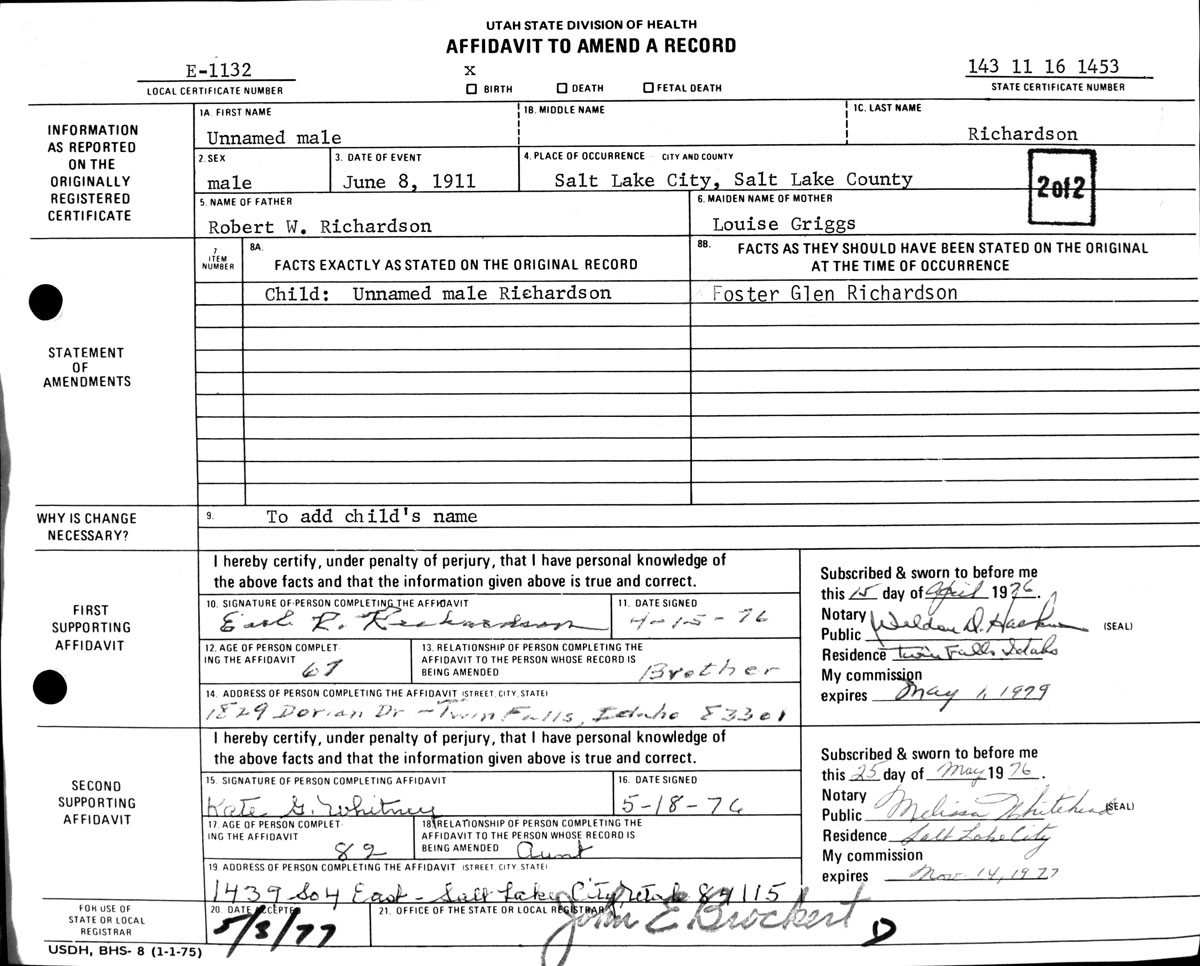 UTAH STATE DIVISION OF HEALTH
AFFIDAVIT TO AMEND A RECORD
E-1132
LOCAL CERTIFICATE NUMBER
X
☐ BIRTH ☐ DEATH ☐ FETAL DEATH
143 11 16 1453
STATE CERTIFICATE NUMBER
INFORMATION
AS REPORTED
ON THE
ORIGINALLY
REGISTERED
CERTIFICATE
1A. FIRST NAME
Unnamed male
1B. MIDDLE NAME
1C. LAST NAME
Richardson
2. SEX
male
3. DATE OF EVENT
June 8, 1911
4. PLACE OF OCCURRENCE - CITY AND COUNTY
Salt Lake City, Salt Lake County
2 of 2
5. NAME OF FATHER
Robert W. Richardson
6. MAIDEN NAME OF MOTHER
Louise Griggs
STATEMENT
OF
AMENDMENTS
7
ITEM
NUMBER
8A.
FACTS EXACTLY AS STATED ON THE ORIGINAL RECORD
8B. FACTS AS THEY SHOULD HAVE BEEN STATED ON THE ORIGINAL
AT THE TIME OF OCCURRENCE
Child: Unnamed male Richardson
Foster Glen Richardson
WHY IS CHANGE
NECESSARY?
9. To add child's name
FIRST
SUPPORTING
AFFIDAVIT
I hereby certify, under penalty of perjury, that I have personal knowledge of
the above facts and that the information given above is true and correct.
10. SIGNATURE OF PERSON COMPLETING THE AFFIDAVIT
Earl R. Richardson
11. DATE SIGNED
4-15-76
12. AGE OF PERSON COMPLET-
ING THE AFFIDAVIT 67
13. RELATIONSHIP OF PERSON COMPLETING THE
AFFIDAVIT TO THE PERSON WHOSE RECORD IS
BEING AMENDED Brother
14. ADDRESS OF PERSON COMPLETING THE AFFIDAVIT (STREET, CITY, STATE)
1829 Dorian Dr - Twin Falls, Idaho 83301
Subscribed & sworn to before me
this 15 day of April 1976.
Notary
Public Weldon D. (SEAL)
Residence Twin Falls Idaho
My commission
expires May 1, 1979
SECOND
SUPPORTING
AFFIDAVIT
I hereby certify, under penalty of perjury, that I have personal knowledge of
the above facts and that the information given above is true and correct.
15. SIGNATURE OF PERSON COMPLETING AFFIDAVIT
Kate G. Whitney
16. DATE SIGNED
5-18-76
17. AGE OF PERSON COMPLET-
ING THE AFFIDAVIT 82
18. RELATIONSHIP OF PERSON COMPLETING THE
AFFIDAVIT TO THE PERSON WHOSE RECORD IS
BEING AMENDED Aunt
19. ADDRESS OF PERSON COMPLETING THE AFFIDAVIT (STREET, CITY, STATE)
1439 So 4 East - Salt Lake City, Utah 84115
Subscribed & sworn to before me
this 25 day of May 1976.
Notary
Public Melissa Whitehead (SEAL)
Residence Salt Lake City
My commission
expires Nov. 14, 1977
FOR USE OF
STATE OR LOCAL
REGISTRAR
20. DATE ACCEPTED
5/3/77
21. OFFICE OF THE STATE OR LOCAL REGISTRAR
John E Brockert D
USDH, BHS- 8 (1-1-75)